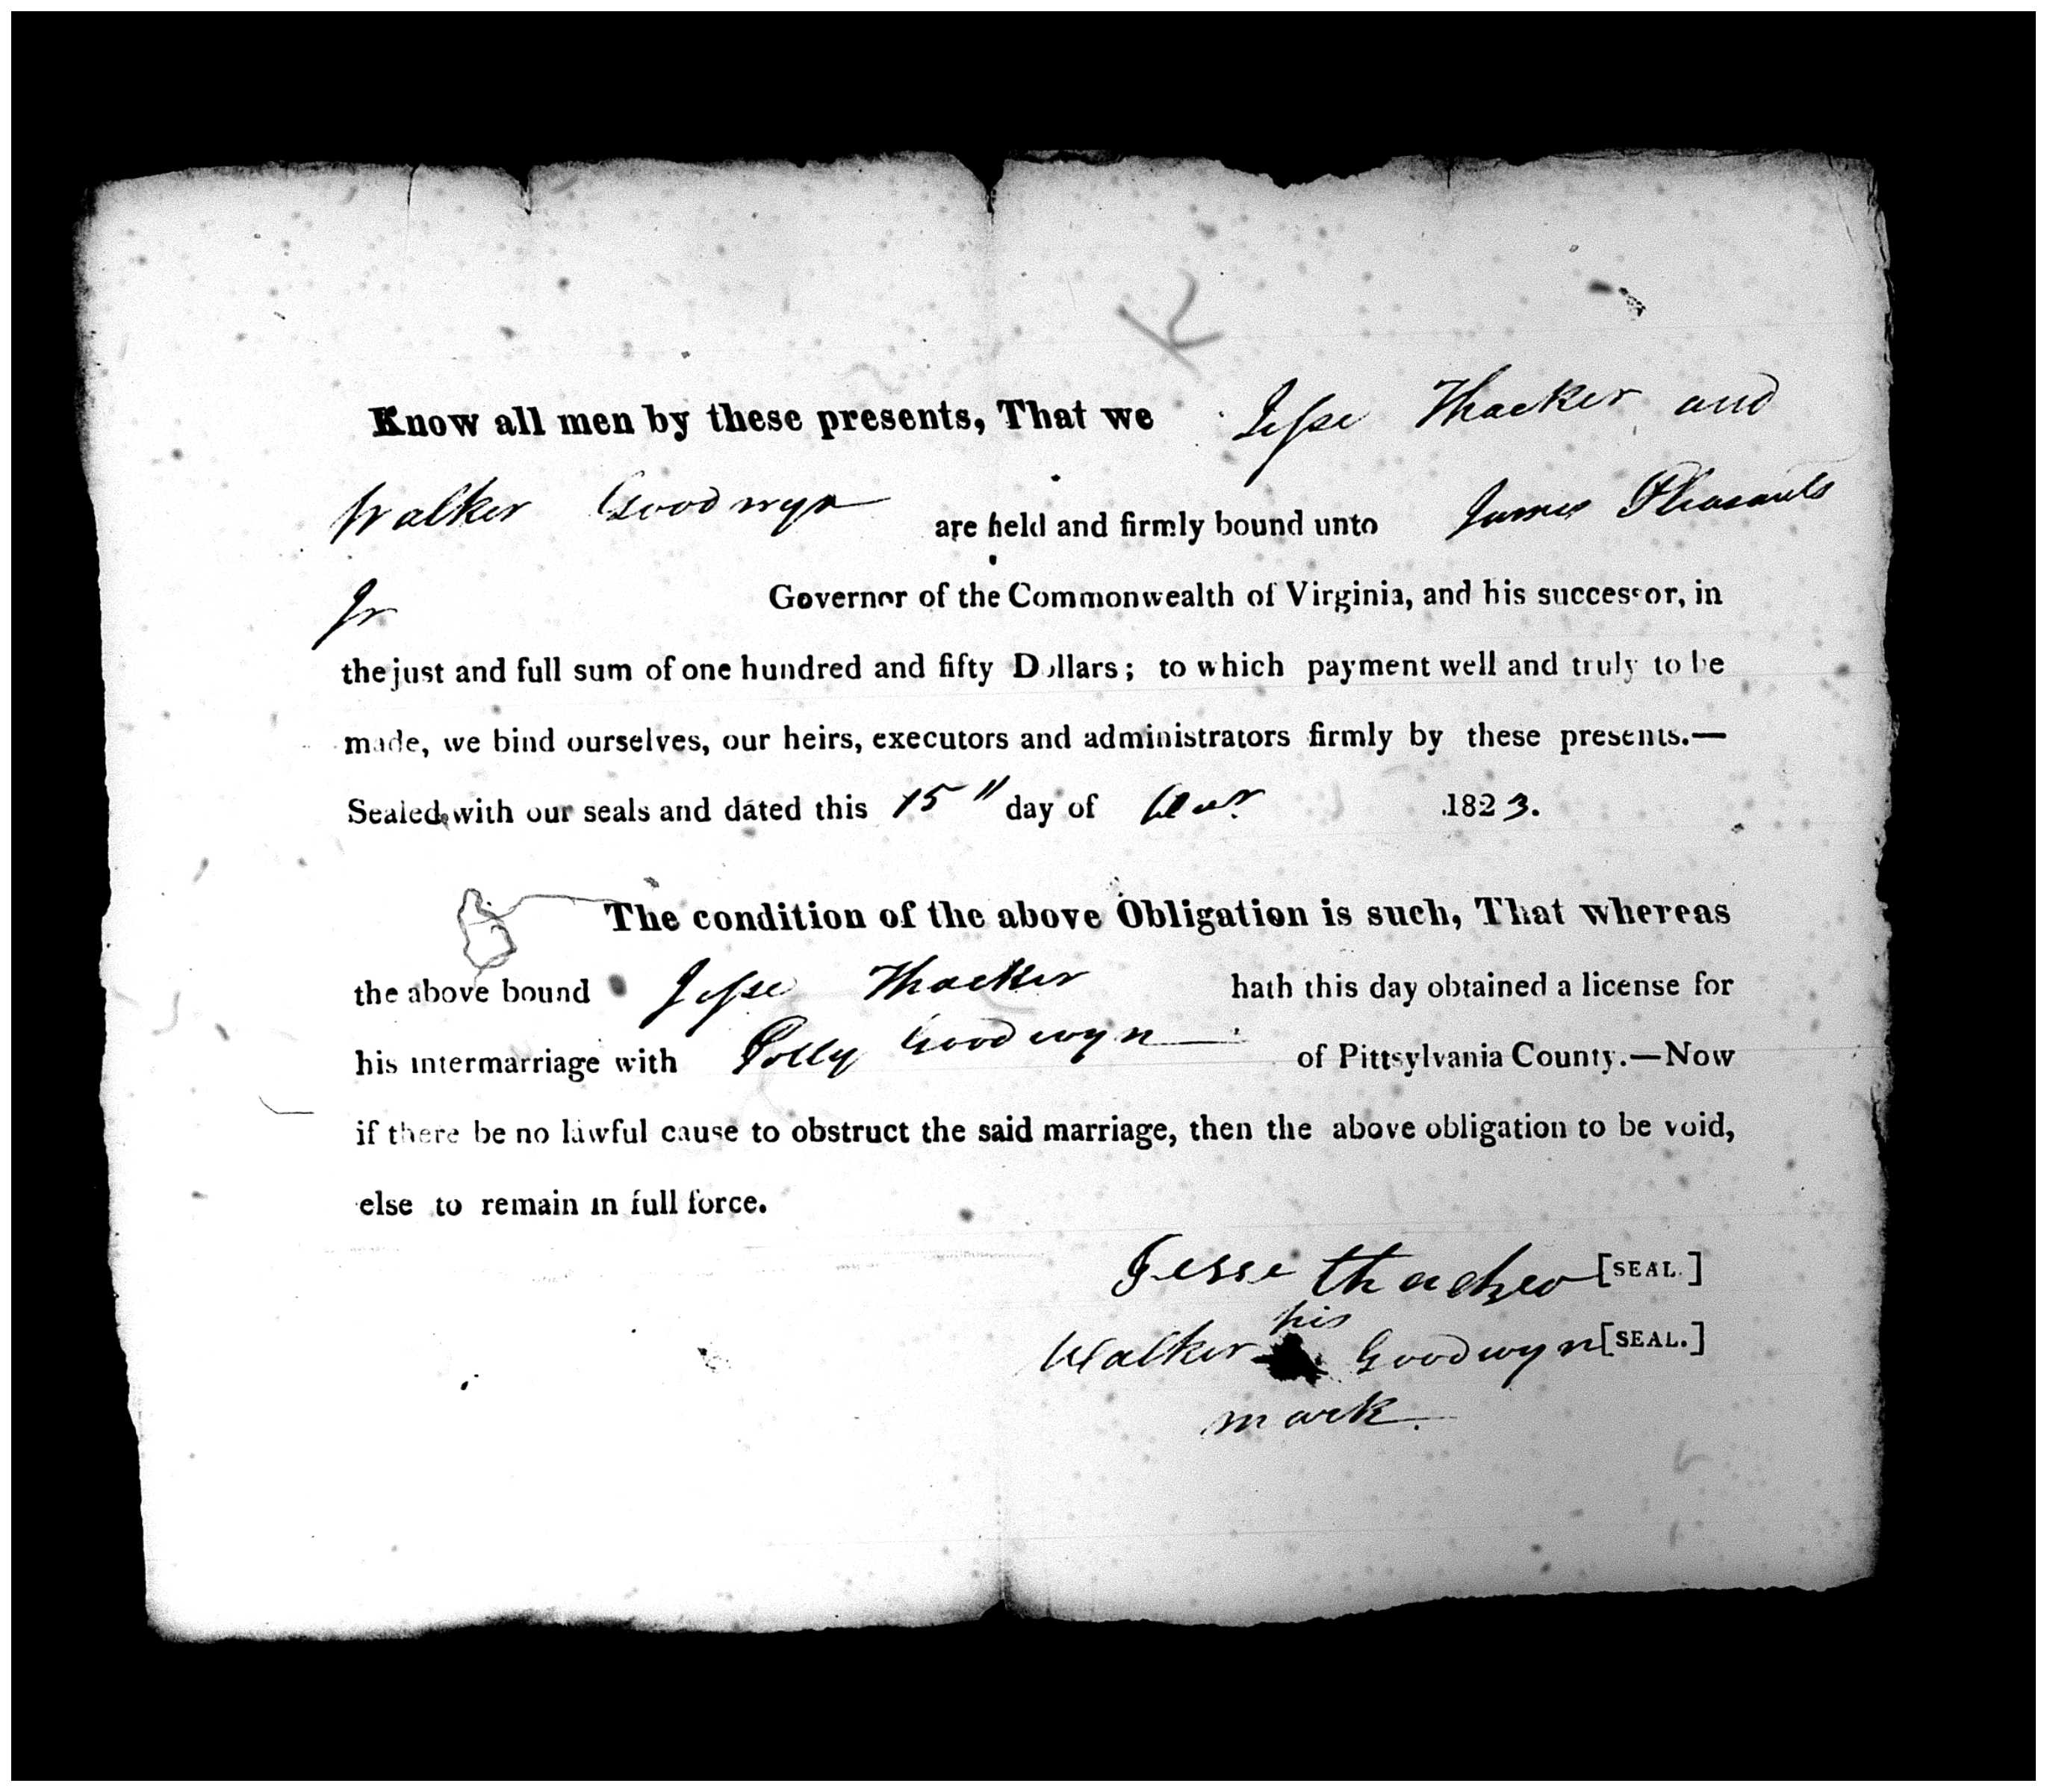 K
Know all men by these presents, That we Jesse Thacker and
Walker Goodwyn are held and firmly bound unto James Pleasants
Jr Governor of the Commonwealth of Virginia, and his successor, in
the just and full sum of one hundred and fifty Dollars; to which payment well and truly to be
made, we bind ourselves, our heirs, executors and administrators firmly by these presents.—
Sealed with our seals and dated this 15" day of 1823.
The condition of the above Obligation is such, That whereas
the above bound Jesse Thacker hath this day obtained a license for
his intermarriage with Polly Goodwyn of Pittsylvania County.—Now
if there be no lawful cause to obstruct the said marriage, then the above obligation to be void,
else to remain in full force.
Jesse Thacker [SEAL.]
his
Walker Goodwyn [SEAL.]
mark.